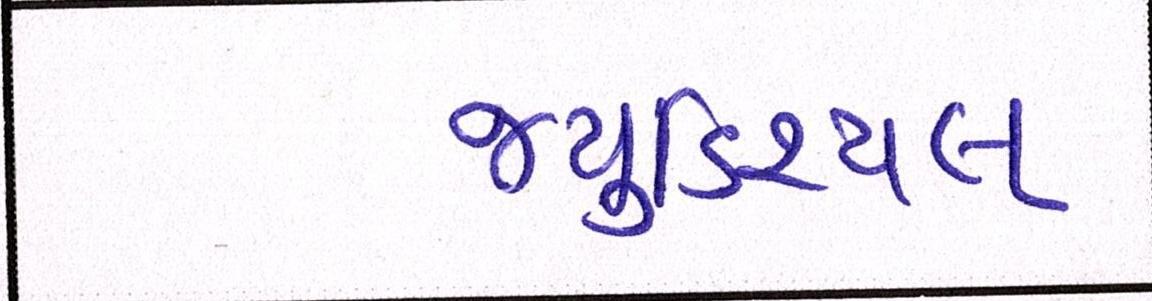 જયુડિશ્યલ